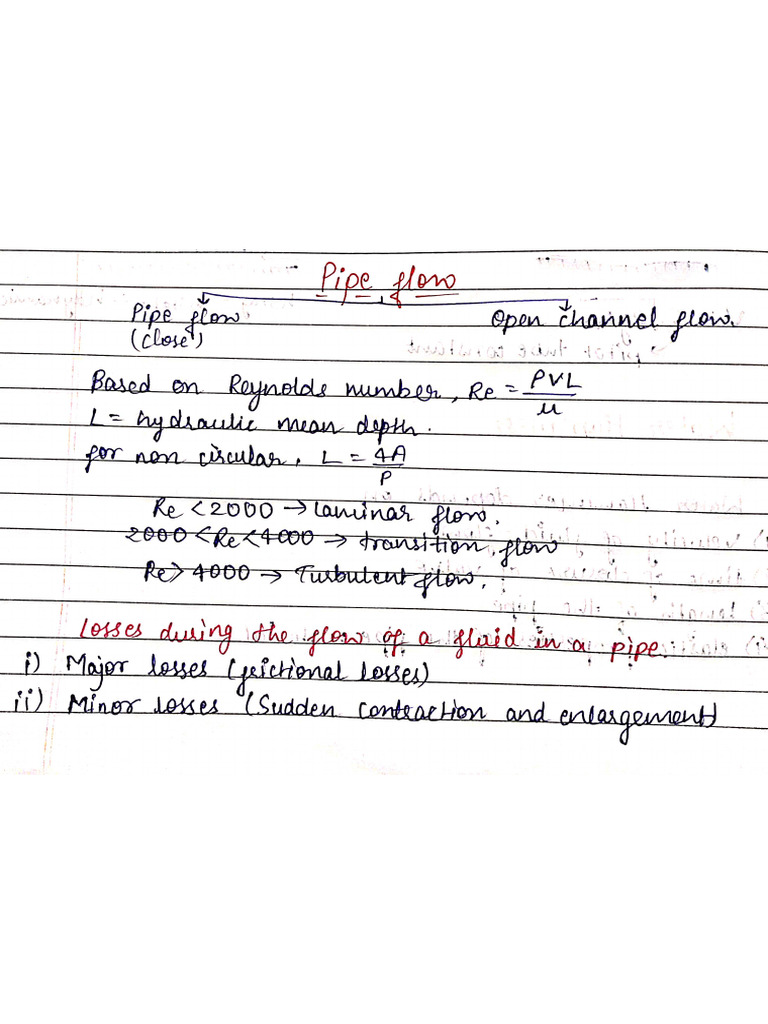 Pipe flow
Pipe flow (close) Open channel flow.
Based on Reynolds number, Re = PVL/μ
L = hydraulic mean depth.
for non circular, L = 4A/P
Re < 2000 → laminar flow.
2000 < Re < 4000 → transition flow
Re > 4000 → Turbulent flow.
Losses during the flow of a fluid in a pipe.
i) Major losses (frictional losses)
ii) Minor losses (Sudden contraction and enlargement)